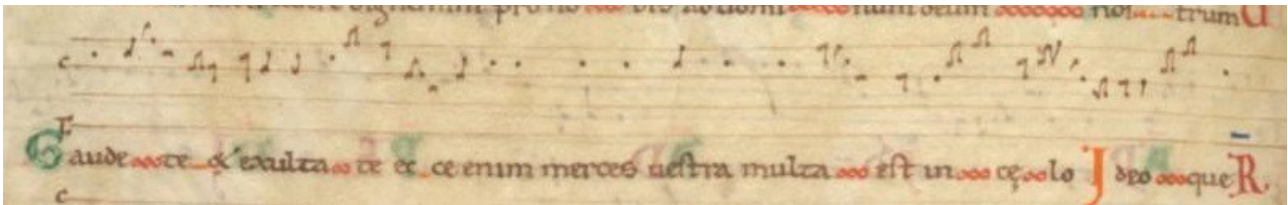 pro no bis ad domi num deum nos trum
c
F
Gaude te & exulta te ec ce enim merces uestra multa est in cę lo Ideo que R.
c